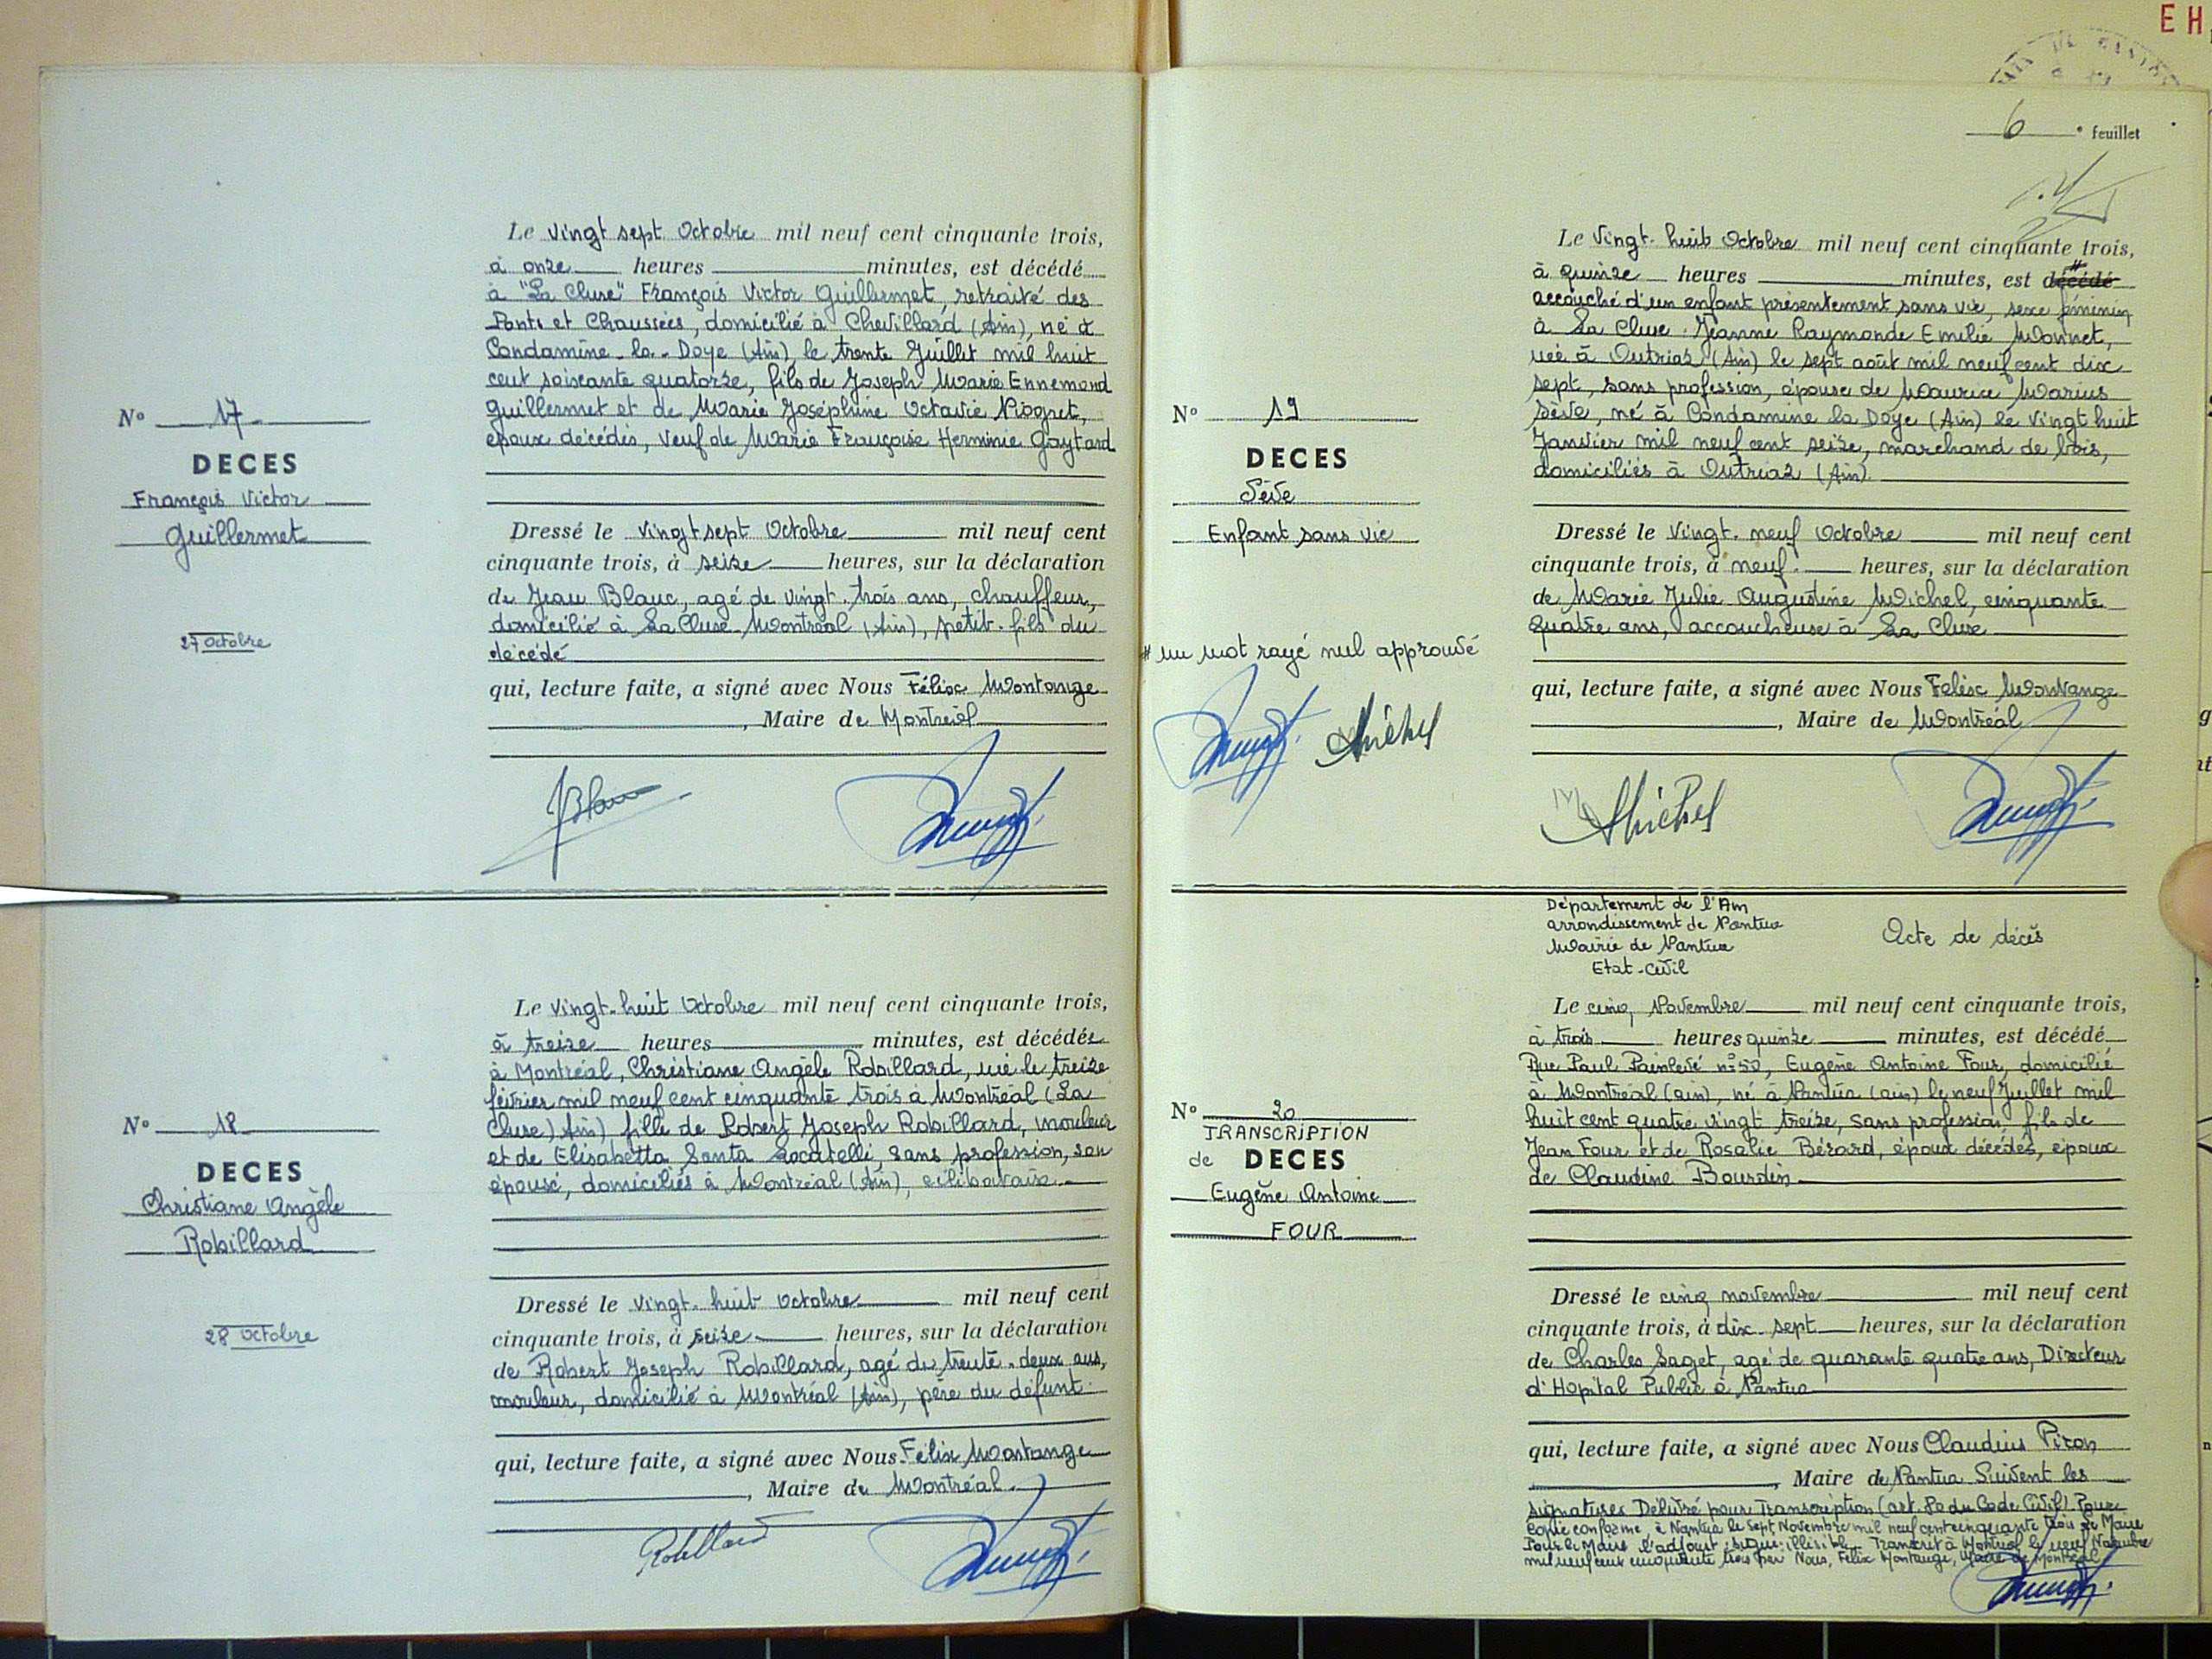 E H
6 e feuillet
Le vingt sept Octobre mil neuf cent cinquante trois,
à onze heures minutes, est décédé
à "La Cluse" François Victor Guillermet, retraité des
Ponts et Chaussées, domicilié à Chevillard (Ain), né à
Condamine-la-Doye (Ain), le trente Juillet mil huit
cent soixante quatorze, fils de Joseph Marie Ennemond
Guillermet et de Marie Joséphine Octavie Niogret,
époux décédés, veuf de Marie Françoise Herminie Goytard
N° 17
DECES
François Victor
Guillermet
27 Octobre
Dressé le vingt sept Octobre mil neuf cent
cinquante trois, à seize heures, sur la déclaration
de Jean Blanc, agé de vingt-trois ans, chauffeur,
domicilié à La Cluse-Montréal (Ain), petit-fils du
décédé
qui, lecture faite, a signé avec Nous Félix Montange
, Maire de Montréal
JBlanc
N° 18
DECES
Christiane Angèle
Robillard
28 Octobre
Le vingt-huit Octobre mil neuf cent cinquante trois,
à treize heures minutes, est décédée
à Montréal, Christiane Angèle Robillard, née le treize
février mil neuf cent cinquante trois à Montréal (La
Cluse) Ain), fille de Robert Joseph Robillard, mouleur
et de Elisabetta Santa Locatelli, sans profession, son
épouse, domiciliés à Montréal (Ain), célibataire.
Dressé le vingt-huit Octobre mil neuf cent
cinquante trois, à seize heures, sur la déclaration
de Robert Joseph Robillard, agé de trente-deux ans,
mouleur, domicilié à Montréal (Ain), père du défunt.
qui, lecture faite, a signé avec Nous Félix Montange
, Maire de Montréal.
Robillard
N° 19
DECES
Sève
Enfant sans vie
# un mot rayé nul approuvé
Michel
Le Vingt-huit Octobre mil neuf cent cinquante trois,
à quinze heures minutes, est décédé #
accouché d'un enfant présentement sans vie, sexe féminin
à La Cluse. Jeanne Raymonde Emilie Monnet,
née à Outriaz (Ain) le sept août mil neuf cent dix
sept, sans profession, épouse de Maurice Marius
Sève, né à Condamine la Doye (Ain) le Vingt huit
Janvier mil neuf cent seize, marchand de bois,
domiciliés à Outriaz (Ain).
Dressé le Vingt-neuf Octobre mil neuf cent
cinquante trois, à neuf heures, sur la déclaration
de Marie Julie Augustine Michel, cinquante
quatre ans, accoucheuse à La Cluse
qui, lecture faite, a signé avec Nous Felix Montange
, Maire de Montréal
Michel
Département de l'Ain
arrondissement de Nantua
Mairie de Nantua
Etat-Civil
Acte de décès
N° 20
TRANSCRIPTION
de DECES
Eugène Antoine
FOUR
Le cinq Novembre mil neuf cent cinquante trois,
à trois heures quinze minutes, est décédé
Rue Paul Painlevé n° 50, Eugène Antoine Four, domicilié
à Montréal (ain), né à Nantua (ain) le neuf Juillet mil
huit cent quatre vingt treize, sans profession, fils de
Jean Four et de Rosalie Bérard, époux décédés, époux
de Claudine Bourdin
Dressé le cinq novembre mil neuf cent
cinquante trois, à dix-sept heures, sur la déclaration
de Charles Saget, agé de quarante quatre ans, Directeur
d'Hopital Public à Nantua
qui, lecture faite, a signé avec Nous Claudius Piron
, Maire de Nantua Suivent les
signatures Délivré pour Transcription (art. 80 du Code Civil) Pour
Copie conforme, à Nantua le Sept Novembre mil neuf cent cinquante trois Le Maire
Pour le Maire l'adjoint: signé: illisible. Transcrit à Montréal le neuf Novembre
mil neuf cent cinquante trois par Nous, Félix Montange, Maire de Montréal